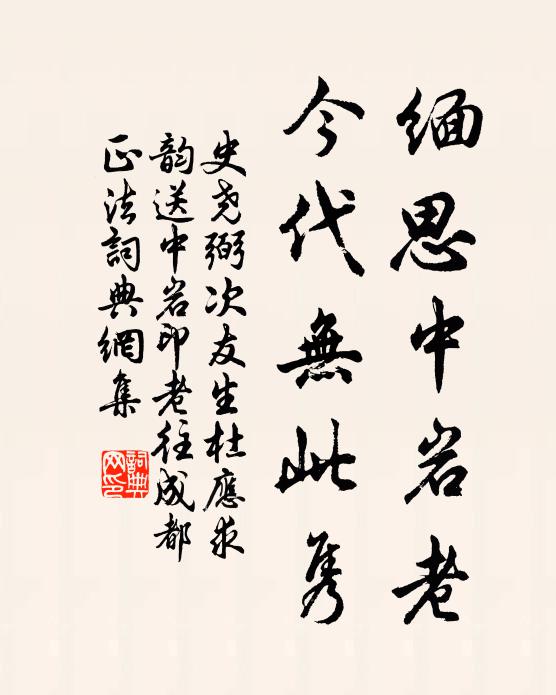 缅思中岩老
今代無此隽
史尧弼次友生杜應求
韵送中岩印老往成都
正法詞典網集
詞典
网印